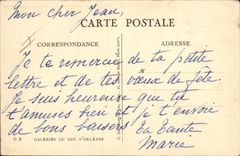 Mon cher Jean,
CARTE POSTALE
CORRESPONDANCE
ADRESSE
Je te remercie de ta petite
lettre et de tes vœux de fête.
Je suis heureuse que tu
t'amuses bien et je t'envoie
de bons baisers Ta tante
Marie
C B GALERIES DU DUC D'ORLÉANS